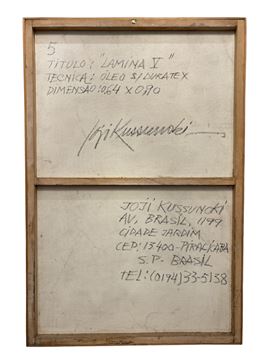 5
TÍTULO: "LAMINA V"
TECNICA: ÓLEO S/DURATEX
DIMENSÃO: 0,64 X 0,90
Joji Kussunoki
JOJI KUSSUNOKI
AV. BRASIL, 1199
CIDADE JARDIM
CEP: 13400-PIRACICABA
S.P. BRASIL
TEL: (0194) 33-5138